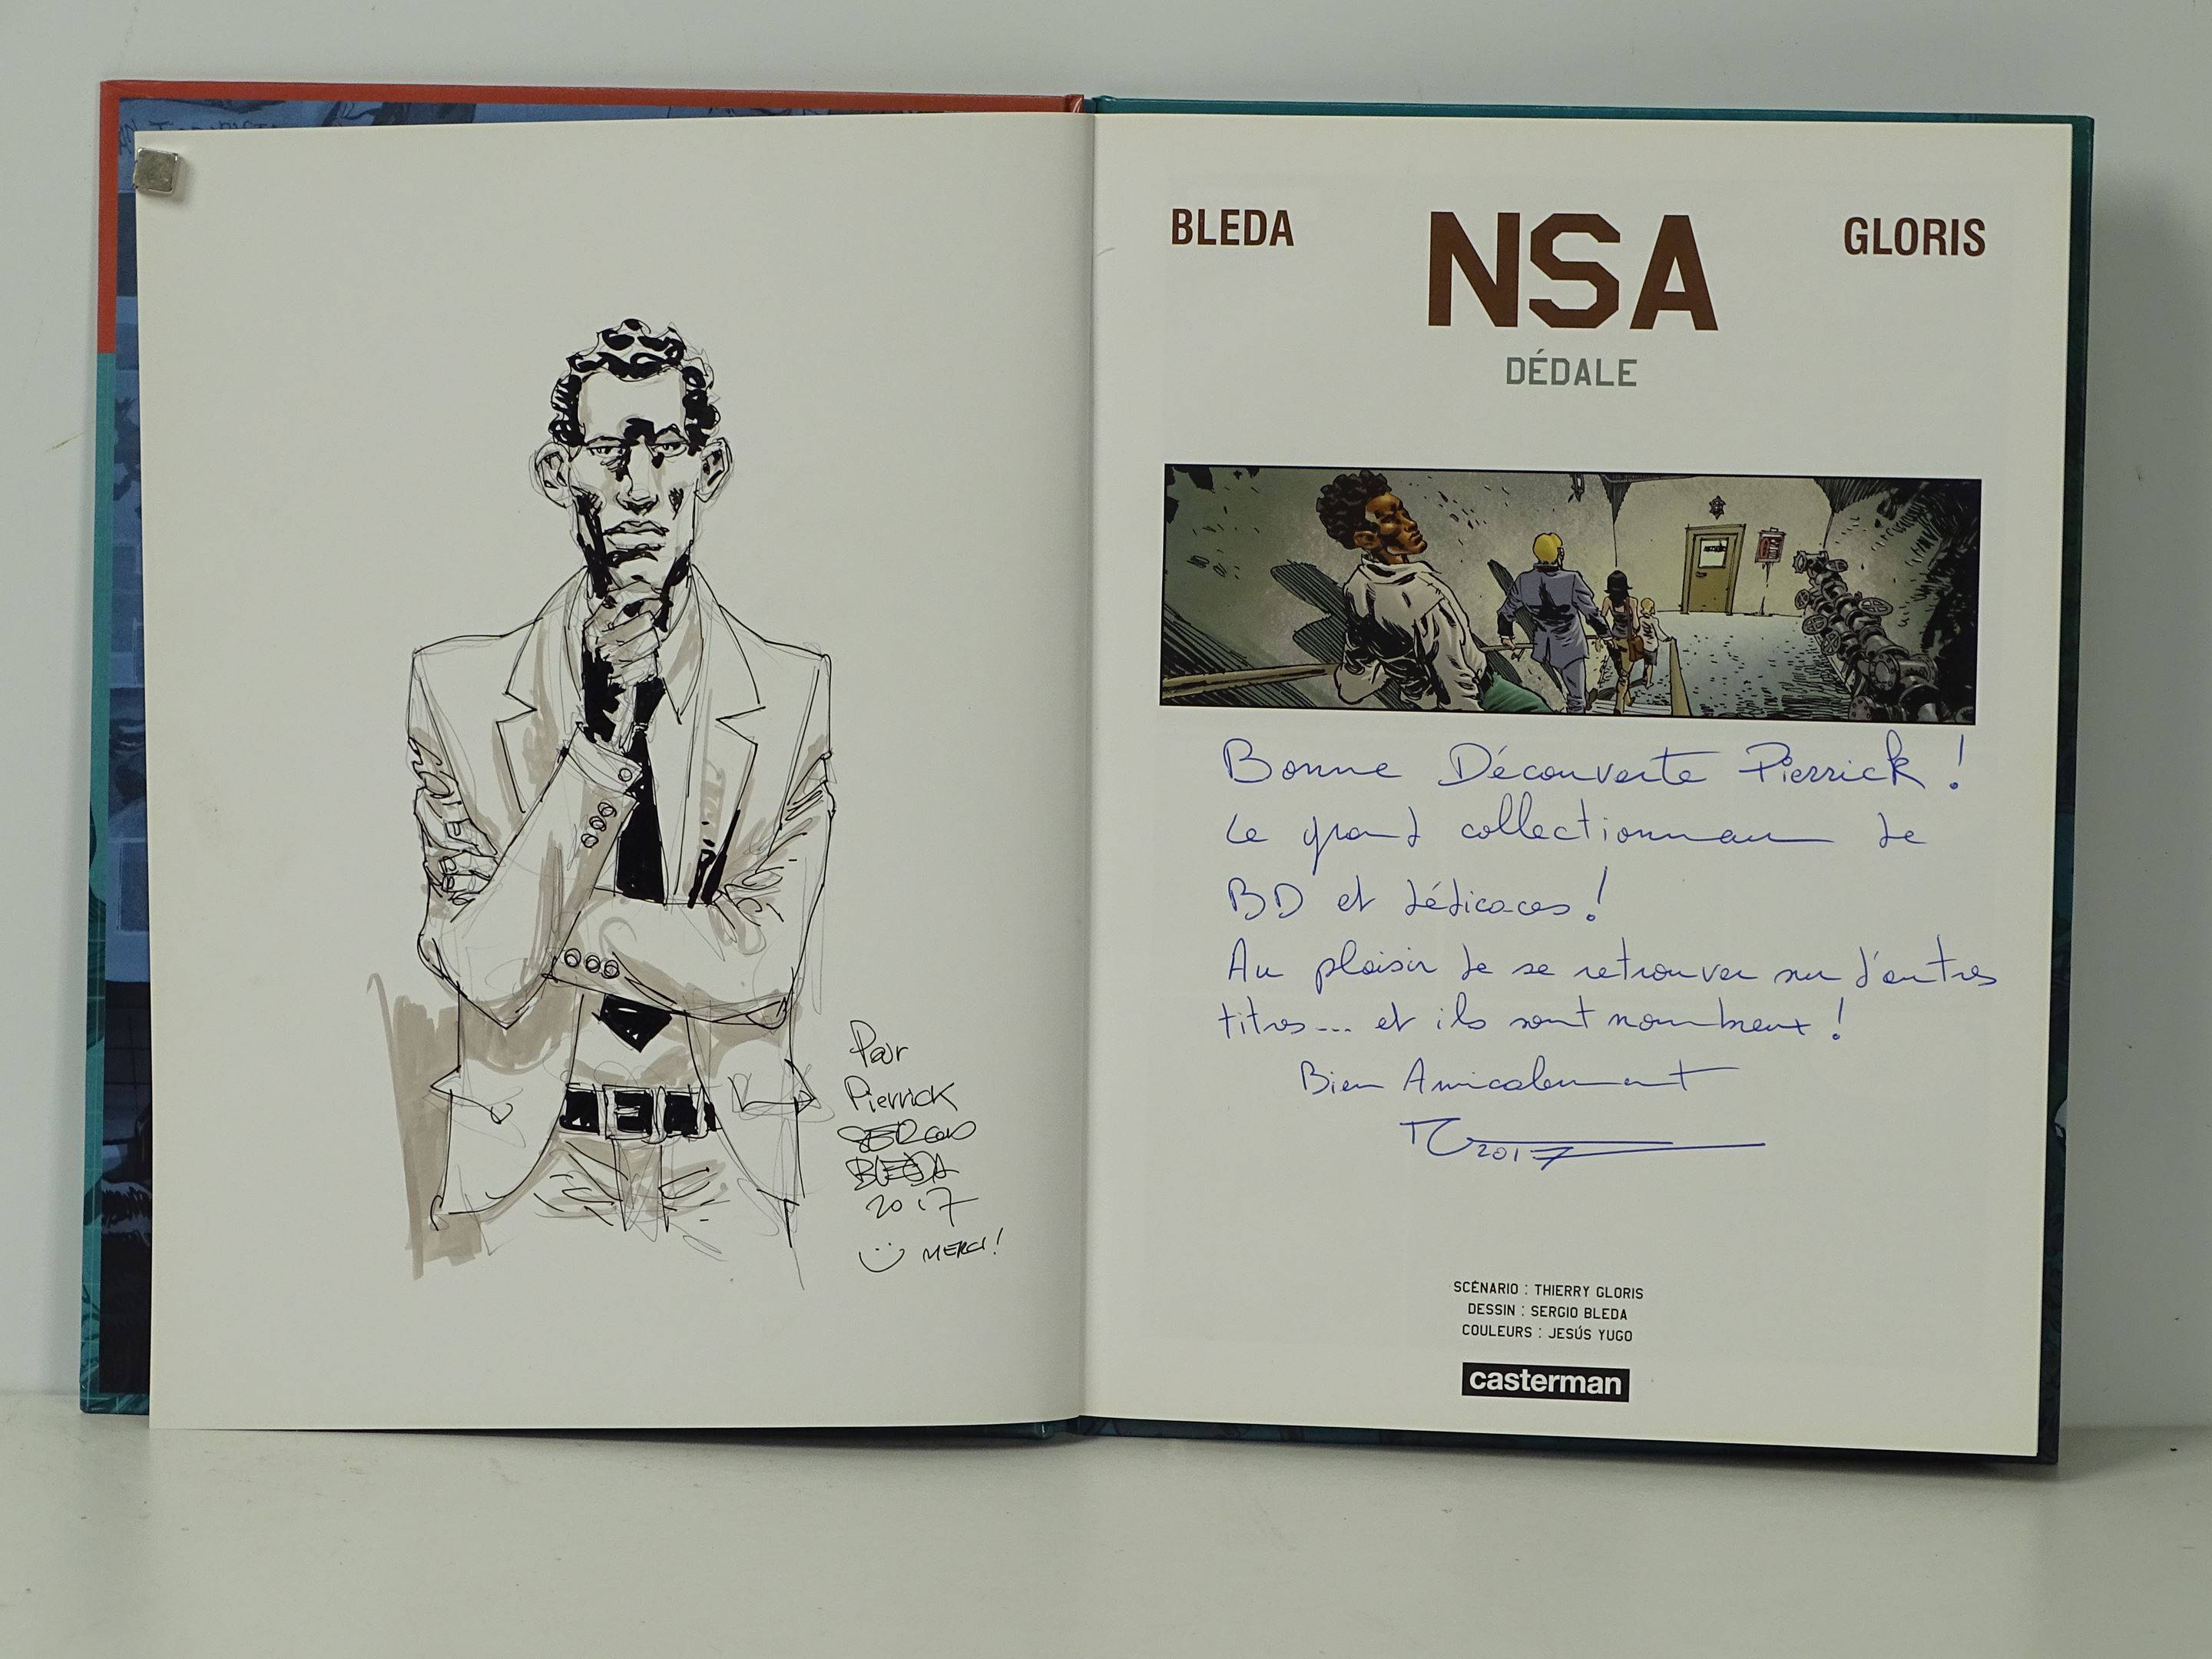 Par
Pierrick
SERGIO
BLEDA
2017
MERCI!
BLEDA
NSA
GLORIS
DÉDALE
Bonne Découverte Pierrick !
Le grand collectionneur de
BD et dédicaces !
Au plaisir de se retrouver sur d'autres
titres... et ils sont nombreux !
Bien Amicalement
TG 2017
SCÉNARIO : THIERRY GLORIS
DESSIN : SERGIO BLEDA
COULEURS : JESÚS YUGO
casterman